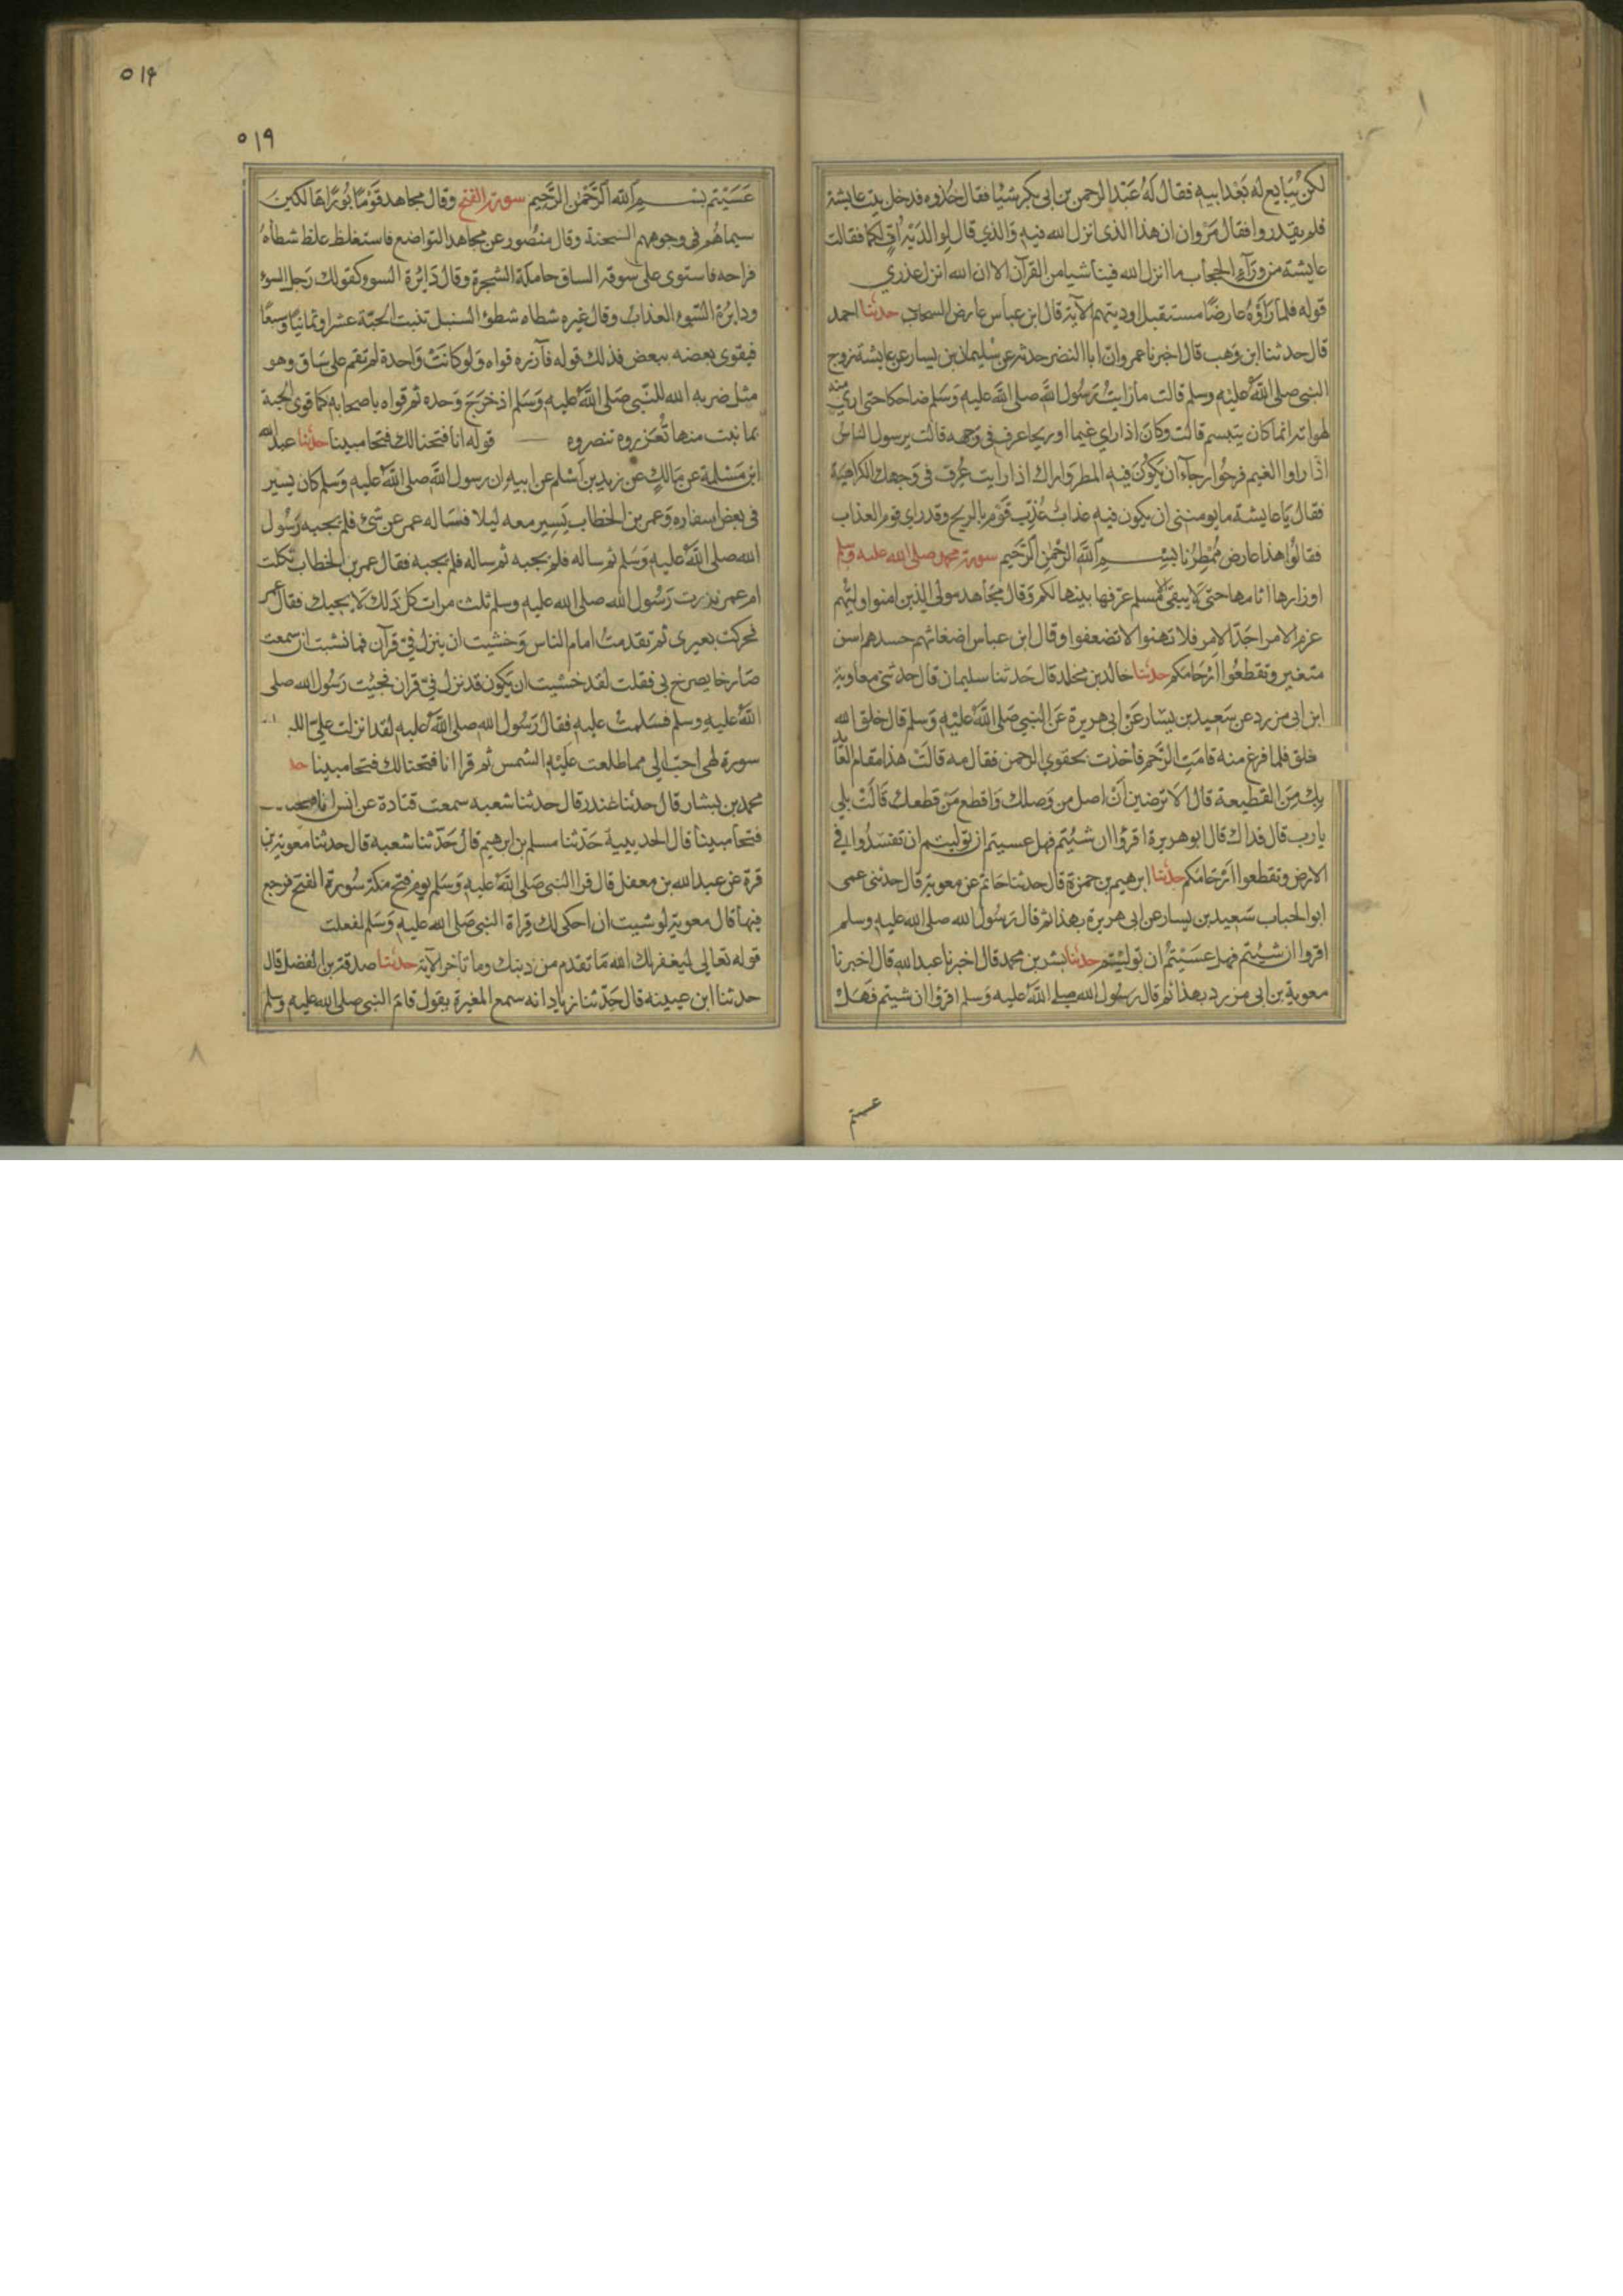 لكن يبايع له بعد ابيه فقال له عبد الرحمن بن ابى بكر شيا فقال خذوه فدخل بيت عايشة
فلم يقدروا فقال مروان ان هذا الذى انزل الله فيه والذي قال لوالديه اف لكما فقالت
عايشة من ورآء الحجاب ما انزل الله فينا شيا من القرآن الا ان الله انزل عذري
قوله فلما راوه عارضا مستقبل اوديتهم الآية قال ابن عباس عارض السحاب حدثنا احمد
قال حدثنا ابن وهب قال اخبرنا عمرو ان ابا النضر حدثه عن سليمان بن يسار عن عايشة زوج
النبى صلى الله عليه وسلم قالت ما رايت رسول الله صلى الله عليه وسلم ضاحكا حتى ارى منه
لهواته انما كان يتبسم قالت وكان اذا راى غيما او ريحا عرف فى وجهه قالت يرسول الناس
اذا راوا الغيم فرحوا رجآء ان يكون فيه المطر واراك اذا رايت عرف فى وجهك الكراهية
فقال يا عايشة ما يومننى ان يكون فيه عذاب عذب قوم بالريح وقد راى قوم العذاب
فقالوا هذا عارض ممطرنا بسم الله الرحمن الرحيم سورة محمد صلى الله عليه وسلم
اوزارها اثامها حتى لا يبقى الا مسلم عرفها بينها لكم وقال مجاهد مولى الذين امنوا وليهم
عزم الامر اجد الامر فلا تهنوا لا تضعفوا وقال ابن عباس اضغانهم حسدهم اسن
متغير وتقطعوا ارحامكم حدثنا خالد بن مخلد قال حدثنا سليمان قال حدثنى معاوية
ابن ابى مزرد عن سعيد بن يسار عن ابى هريرة عن النبي صلى الله عليه وسلم قال خلق الله
خلق فلما فرغ منه قامت الرحم فاخذت بحقوي الرحمن فقال مه قالت هذا مقام العايذ
بك من القطيعة قال الا ترضين ان اصل من وصلك واقطع من قطعك قالت بلي
يارب قال فداك قال ابو هريرة اقروا ان شيتم فهل عسيتم ان توليتم ان تفسدوا في
الارض وتقطعوا ارحامكم حدثنا ابرهيم بن حمزة قال حدثنا حاتم عن معوية قال حدثنى عمى
ابو الحباب سعيد بن يسار عن ابى هريرة بهذا ثم قال رسول الله صلى الله عليه وسلم
اقروا ان شيتم فهل عسيتم ان توليتم حدثنا بشر بن محمد قال اخبرنا عبد الله قال اخبرنا
معوية بن ابى مزرد بهذا ثم قال رسول الله صلى الله عليه وسلم اقروا ان شيتم فهل
عسيتم
٥١٩
٥١٩
عسيتم بسم الله الرحمن الرحيم سورة الفتح وقال مجاهد قوما بورا هالكين
سيماهم فى وجوههم السحنة وقال منصور عن مجاهد التواضع فاستغلظ غلظ شطأه
فراخه فاستوى على سوقه الساق حاملة الشجرة وقال دايرة السوء كقولك رجل السوء
ودايرة السوء العذاب وقال غيره شطاه شطؤ السنبل تنبت الحبة عشرا وثمانيا وسبعا
فيقوى بعضه ببعض فذلك قوله فآزره قواه ولو كانت واحدة لم تقم على ساق وهو
مثل ضربه الله للنبى صلى الله عليه وسلم اذ خرج وحده ثم قواه باصحابه كما قوى الحبة
بما نبت منها تعزروه تنصروه قوله انا فتحنا لك فتحا مبينا حدثنا عبد الله
ابن مسلمة عن مالك عن زيد بن اسلم عن ابيه ان رسول الله صلى الله عليه وسلم كان يسير
فى بعض اسفاره وعمر بن الخطاب يسير معه ليلا فساله عمر عن شئ فلم يجبه رسول
الله صلى الله عليه وسلم ثم ساله فلم يجبه ثم ساله فلم يجبه فقال عمر بن الخطاب ثكلت
ام عمر نزرت رسول الله صلى الله عليه وسلم ثلث مرات كل ذلك لا يجيبك فقال عمر
فحركت بعيرى ثم تقدمت امام الناس وخشيت ان ينزل فى قرآن فما نشبت ان سمعت
صارخا يصرخ بى فقلت لقد خشيت ان يكون قد نزل فى قران فجئت رسول الله صلى
الله عليه وسلم فسلمت عليه فقال رسول الله صلى الله عليه لقد انزلت على
سورة لهى احب الى مما طلعت عليه الشمس ثم قرا انا فتحنا لك فتحا مبينا حد
محمد بن بشار قال حدثنا غندر قال حدثنا شعبه سمعت قتادة عن انس انا
فتحا مبينا قال الحديبية حدثنا مسلم بن ابرهيم قال حدثنا شعبه قال حدثنا معوية بن
قرة عن عبد الله بن مغفل قال قرا النبى صلى الله عليه وسلم يوم فتح مكة سورة الفتح فرجع
فيها قال معوية لو شيت ان احكى لك قراة النبي صلى الله عليه وسلم لفعلت
قوله تعالى ليغفر لك الله ما تقدم من ذنبك وما تاخر الآية حدثنا صدقة بن الفضل قال
حدثنا ابن عيينه قال حدثنا زياد انه سمع المغيرة يقول قام النبي صلى الله عليه وسلم